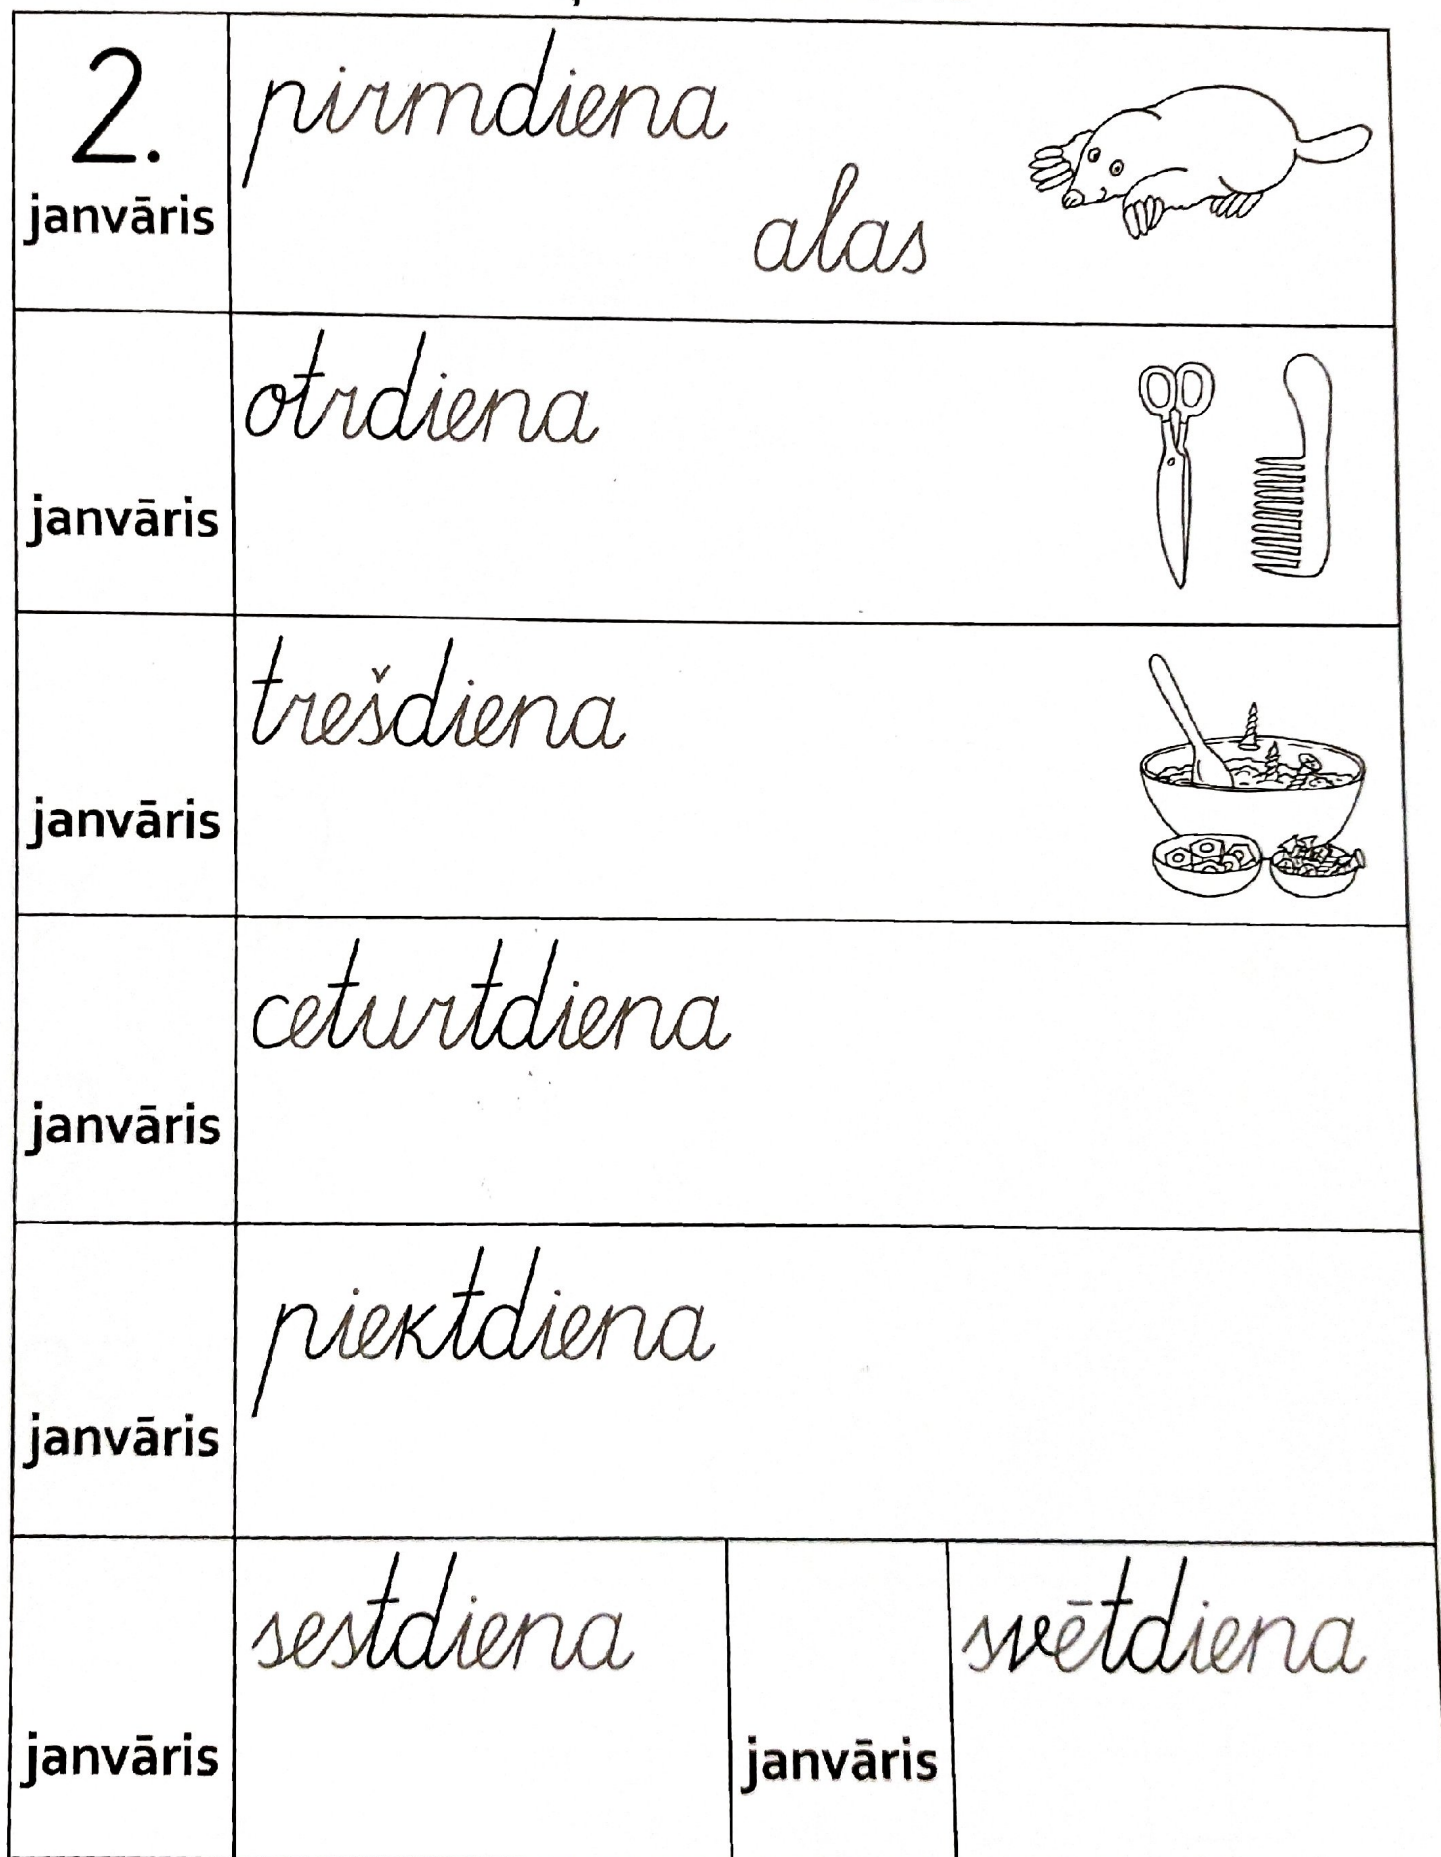 2.
janvāris
pirmdiena
alas
janvāris
otrdiena
janvāris
trešdiena
janvāris
ceturtdiena
janvāris
piektdiena
janvāris
sestdiena
janvāris
svētdiena